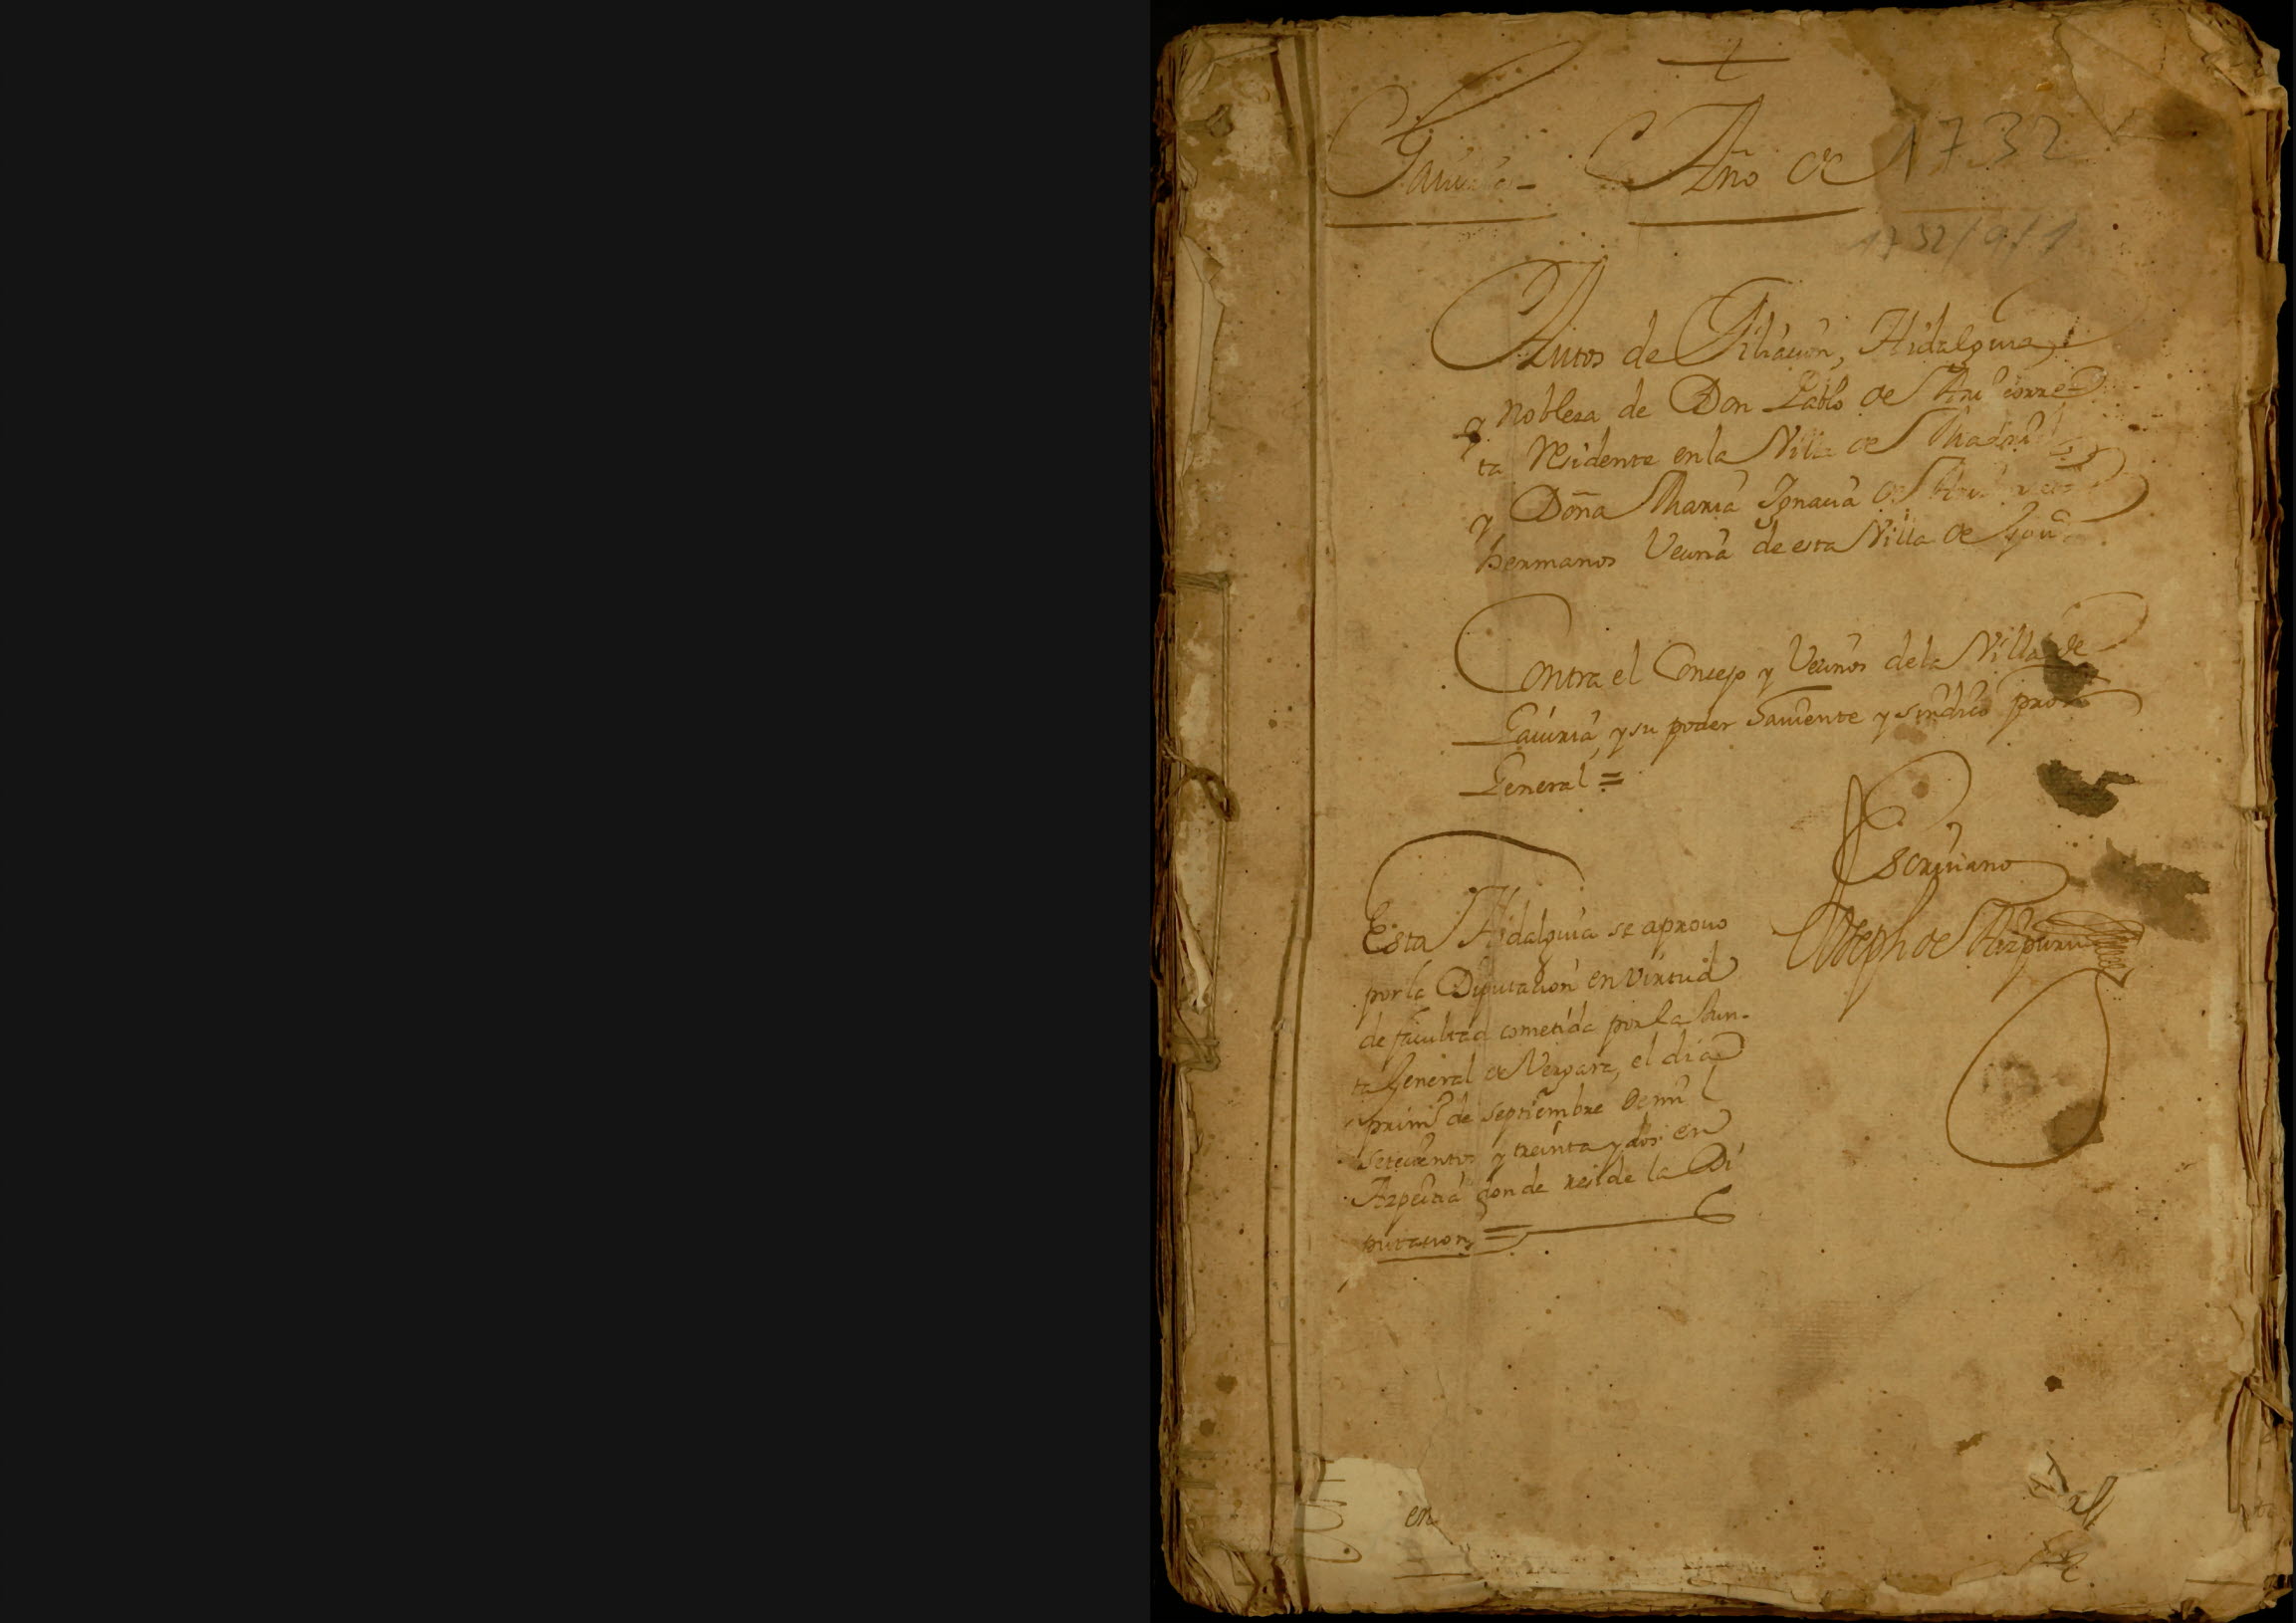 Año de 1732
Autos de Filiacion, Hidalguia,
y Nobleza de Don Pablo de
ta Residente en la Villa de Madrid
y Doña Maria Ignacia de
hermanos Vecina de esta Villa de
Contra el Concejo y Vecinos de la Villa de
Gaviria, y su poder haviente y sindico pror
General =
Escrivano
Joseph de Aizpuru
Esta Hidalguia se aprovo
por la Diputacion en virtud
de facultad cometida por la Jun-
ta General de Vergara, el dia
primo de septiembre de mil
setecientos y treinta y dos en
Azpeitia donde reside la Di
putacion =
en